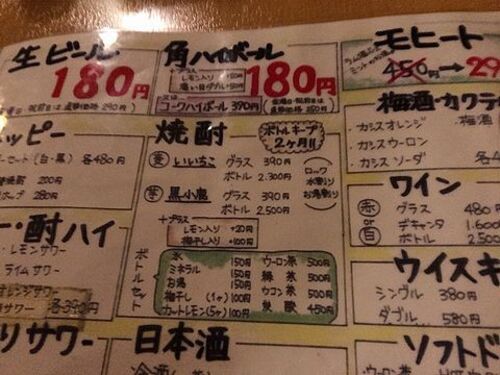 生ビール
180円
角ハイボール
180円
+プラス
レモン入り
コークハイボール 390円
モヒート
450円→29
ッピー
セット(白・黒) 各480円
200円
280円
焼酎
ボトルキープ
2ヶ月!!
麦 いいちこ グラス 390円
ボトル 2.300円
芋 黒小鹿 グラス 390円
ボトル 2.500円
ロック
水割り
お湯割り
+プラス
レモン入り +20円
梅干し入り +100円
ボトルセット
氷 150円
ミネラル 150円
お湯 150円
梅干し(1ヶ) 100円
カットレモン(5ヶ) 100円
ウーロン茶 500円
緑茶 500円
ウコン茶 500円
炭酸 450円
梅酒・カクテ
・カシスオレンジ
・カシスウーロン
・カシスソーダ
梅酒
各4
ワイン
赤 or 白
グラス 480円
デキャンタ 1.600
ボトル 2.500
ー・酎ハイ
レモンサワー
ライムサワー
オレンジサワー
サワー 各390円
ウイスキ
シングル 380円
ダブル 580円
りサワー
日本酒
ソフトド